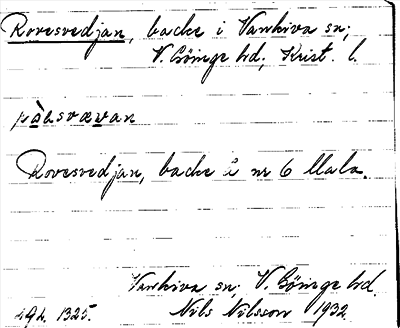 Rovesvedjan, backe i Vankiva sn;
V. Göinge hd; Krist. l.
Rovesvedjan, backe å nr 6 Mala.
Vankiva sn; V. Göinge hd.
Nils Nilsson 1932
1325.